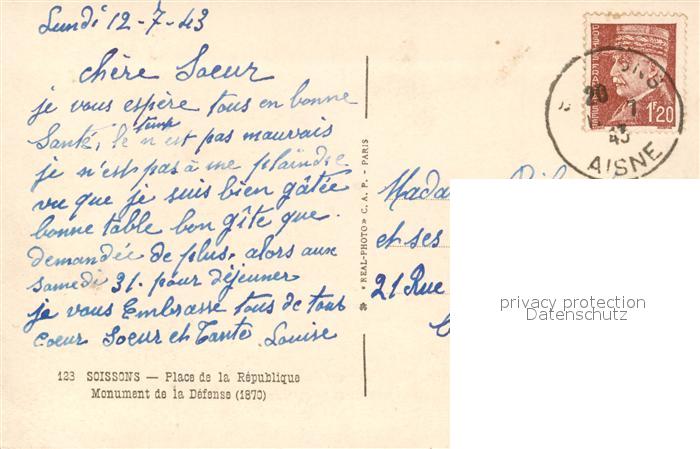 Lundi 12-7-43
chère Soeur
je vous espère tous en bonne
Santé, le temps n'est pas mauvais
je n'est pas à me plaindre
vu que je suis bien gâtée
bonne table bon gîte que
demandée de plus, alors aux
samedi 31. pour déjeuner
je vous Embrasse tous de tout
coeur Soeur et Tante Louise
123 SOISSONS — Place de la République
Monument de la Défense (1870)
"REAL-PHOTO" C. A. P. - PARIS
POSTES FRANÇAISES
1F20
20 7
43
AISNE
Mada
et ses
21 Rue
privacy protection
Datenschutz